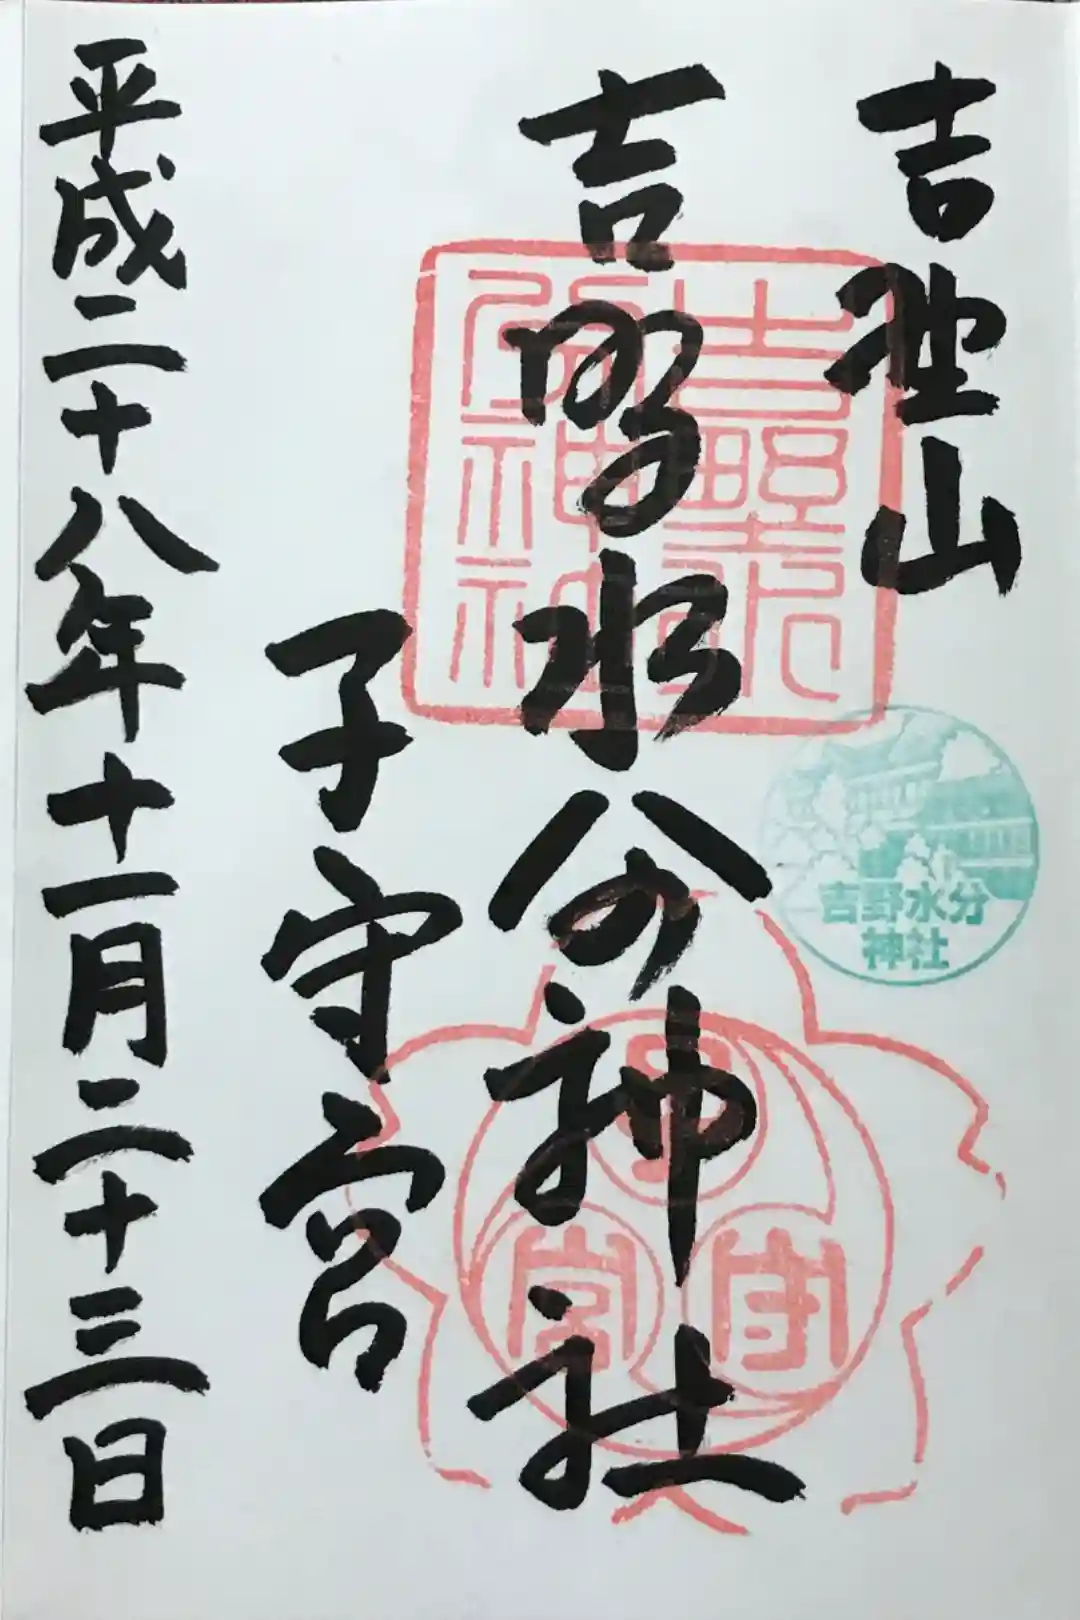 吉野山
吉野水分神社
子守宮
平成二十八年十一月二十三日
吉野水分
神社
子
守
宮